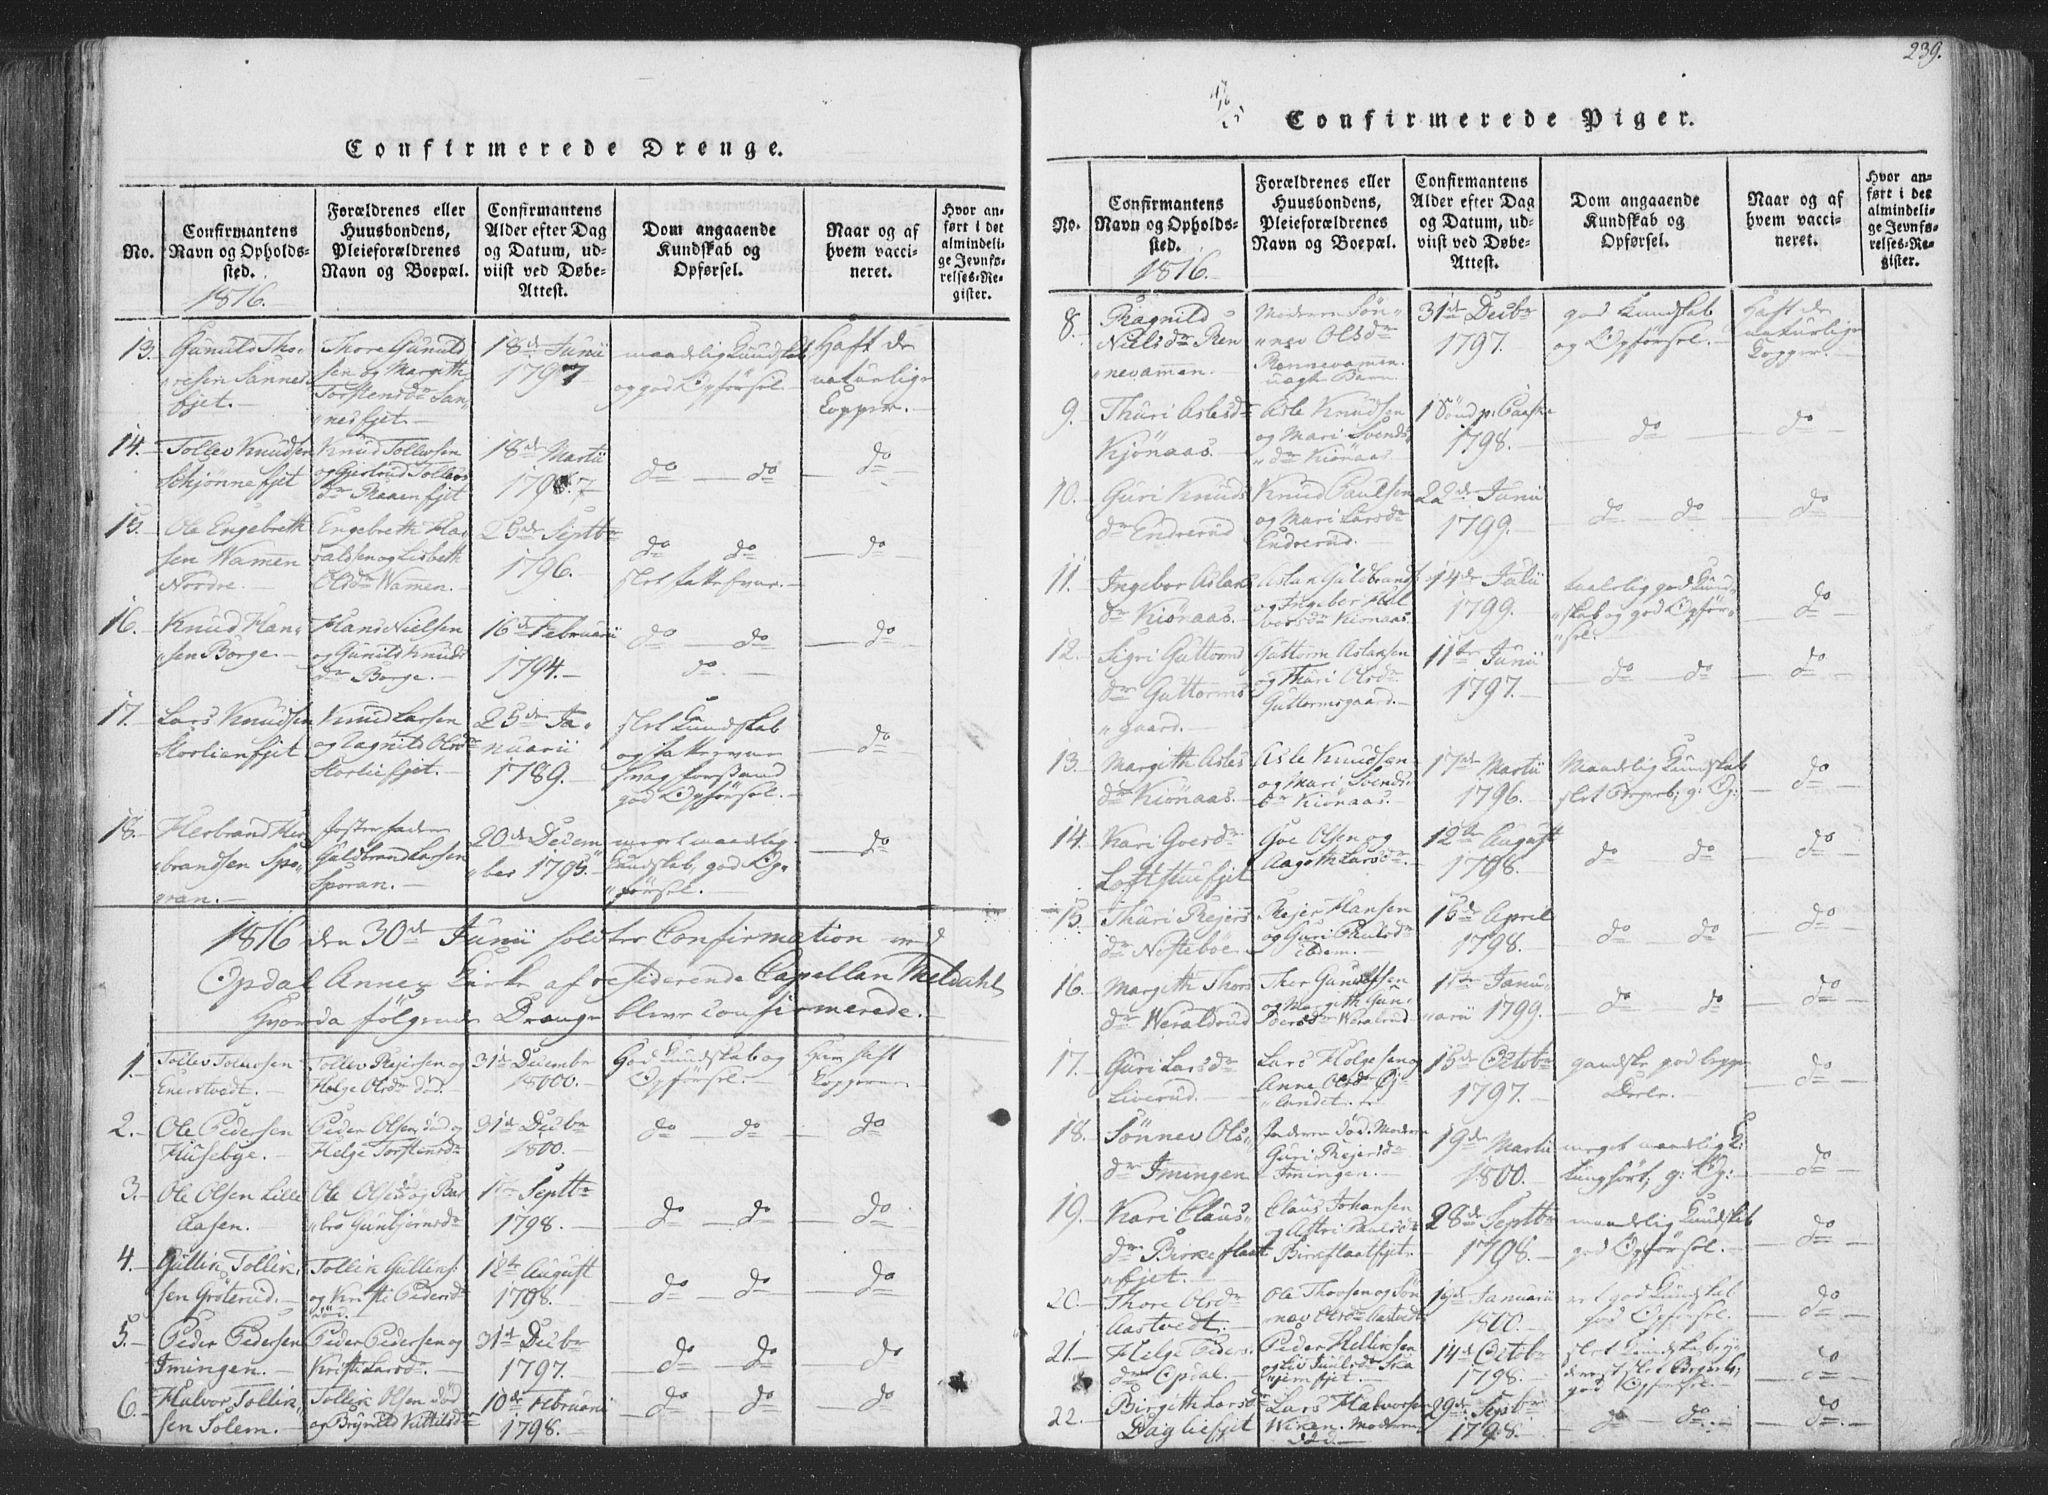 Confirmerede Drenge.
No.
Confirmantens
Navn og Opholds-
sted.
1816.
Forældrenes eller
Huusbondens,
Pleieforældrenes
Navn og Boepæl.
Confirmantens
Alder efter Dag
og Datum, ud-
viist ved Døbe-
Attest.
Dom angaaende
Kundskab og
Opførsel.
Naar og af
hvem vacci-
neret.
Hvor an-
ført i det
almindeli-
ge Jevnfø-
relses-Re-
gister.
13.
Gunuld Tho-
resen Sannes
fjet.
Thore Gunuld
sen og Margith
Torstensdr San-
nesfjet.
18de Junii
1797
maadelig Kundskab
og god Opførsel.
Haft de
naturlige
Kopper.
14.
Tollev Knudsen
Schjönnefjet
Knud Tollevsen
og Gjertrud Tollevs
dr
18de Martii
179 7
do do
do
15.
Ole Engebreth
sen Wamen
Nordre.
Engebreth Ha
valdsen og Lisbeth
Olsdr Wamen.
25de Septbr
1796.
do do
do
16.
Knud Han-
sen Borge.
Hans Nielsen
og Gunild Knuds
dr Borge.
16de Februarii
1794.
do do
do.
do
17.
Lars Knudsen
Storliefjet
Knud Larsen
og Ragnild Olsdr
Storliefjet.
25de Ja-
nuarii
1789.
slet Kundskab
og
svag Forstand
god Opførsel.
do
18.
Herbrand Her
brandsen Spo-
ran.
Fosterfader
Guldbrand Larsen
Sporan.
20de Decem
ber 1795.
meget maadelig
Kundskab, god Op-
førsel.
do
1816 den 30de Junii holdtes Confirmation ved
Opdal Annex Kirke af residerende Capellan Meldahl
hvorda følgende Drenge bleve confirmerede.
1.
Tollev Tollevsen
Enerstvedt.
Tollev Rejersen og
Helge Olsdr död.
31de December
1800.
God Kundskab og
Opførsel.
Hun haft
Kopperne
2.
Ole Pedersen
Husebye.
Peder Olsen död og
Helge Torstensdr
31de Decbr
1800.
do do
do
3.
Ole Olsen Lille
Aasen.
Ole Olsen og Bar
bro Gunbjörnsdr
1ste Septbr
1798.
do do
do
4.
Gullik Tollik-
sen Gröterud.
Tollik Gulliks:
og Kristi Pedersdr
död.
12te August
1798.
do do
do
5.
Peder Pedersen
Imingen.
Peder Pedersen og
Kristi Larsdr.
31de Decbr
1797.
do do
do
6.
Halvor Tollik-
sen Solem.
Tollik Olsen död
og Brynild Kittilsdr
10de Februarii
1798.
do do
do
239.
Confirmerede Piger.
No.
Confirmantens
Navn og Opholds-
sted.
1816.
Forældrenes eller
Huusbondens,
Pleieforældrenes
Navn og Boepæl.
Confirmantens
Alder efter Dag
og Datum, ud-
viist ved Døbe-
Attest.
Dom angaaende
Kundskab og
Opførsel.
Naar og af
hvem vacci-
neret.
Hvor an-
ført i det
almindeli-
ge Jevnfø-
relses-Re-
gister.
8.
Ragnild
Nielsdr Ren
nevamen.
Moderen Sön-
nev Olsdr
Rennevamen
uægte Barn.
31de Decbr
1797.
god Kundskab
og Opførsel.
Haft de
naturlige
Kopper.
9.
Thuri Aslesdr
Kjönaas.
Asle Knudsen
og Mari Svends-
dr Kiönaas
1 Sönd p: Paaske
1798.
do
do
10.
Guri Knuds
dr Endrerud
Knud Paulsen
og Mari Larsdr
Endrerud.
22de Junii
1799.
do do
do
11.
Ingebor Aslans
dr Kiönaas.
Aslan Guldbrands
og Ingebor Hal
vorsdr Kiönaas.
14de Julii
1799.
taalelig god Kund-
skab og god Opför-
sel.
do
12.
Sigri Guttorms
dr Guttorms
gaard.
Guttorm Aslansen
og Thuri Olsdr
Guttormsgaard.
11te Junii
1797.
do do
do
13.
Margith Asles
dr Kiönaas.
Asle Knudsen
og Mari Svends-
dr Kiönaas.
17de Martii
1796.
Maadelig Kundskab
slet Begreb; g: Op:
do
14.
Kari Goesdr
Loftstuefjet
Goe Olsen og
Aagoth Larsdr.
12te August
1798.
do do
do
15.
Thuri Rejers
dr Nöfteböe
Rejer Hansen
og Guri Paulsdr
ibdem.
15de April
1798.
do do
do
16.
Margith Thors
dr Weraldrud
Thor Gunulfsen
og Margith Gun-
versdr Weralrud
1ste Janu-
arii 1799.
do do
do
17.
Guri Larsdr
Liverud.
Lars Helgesen og
Anne Olsdr Ej-
landet.
15de Octobr
1797.
gandske god
do
18.
Sönnev Ols-
dr Imingen
Faderen död. Moderen
Guri Rejersdr
Imingen.
19de Martii
1800.
meget maadelig K:
g: Op:
do
19.
Kari Claus-
dr Birkeflaat
fjet.
Claus Johansen
og Astri Paulsdr
Birkeflaatfjet.
28de Septbr
1798.
maadelig Kundskab
god Opførsel.
do
20.
Thore Olsdr
Aastvedt.
Ole Thoresen og Sön
nev Olsdr Aastvedt
19de Januarii
1800.
god Kundskab
god Opførsel.
do
21.
Helge Peders-
dr Opdal.
Peder Hellinsen
og Liv Juulsdr Ska
jemfjet.
14de Octobr
1798.
slet Kundskab
slet Begreb,
god Opførsel.
do
22.
Birgith Larsdr
Dagliefjet
Lars Halvorsen
Moderen
död
29de Septbr
1798.
do do
do.